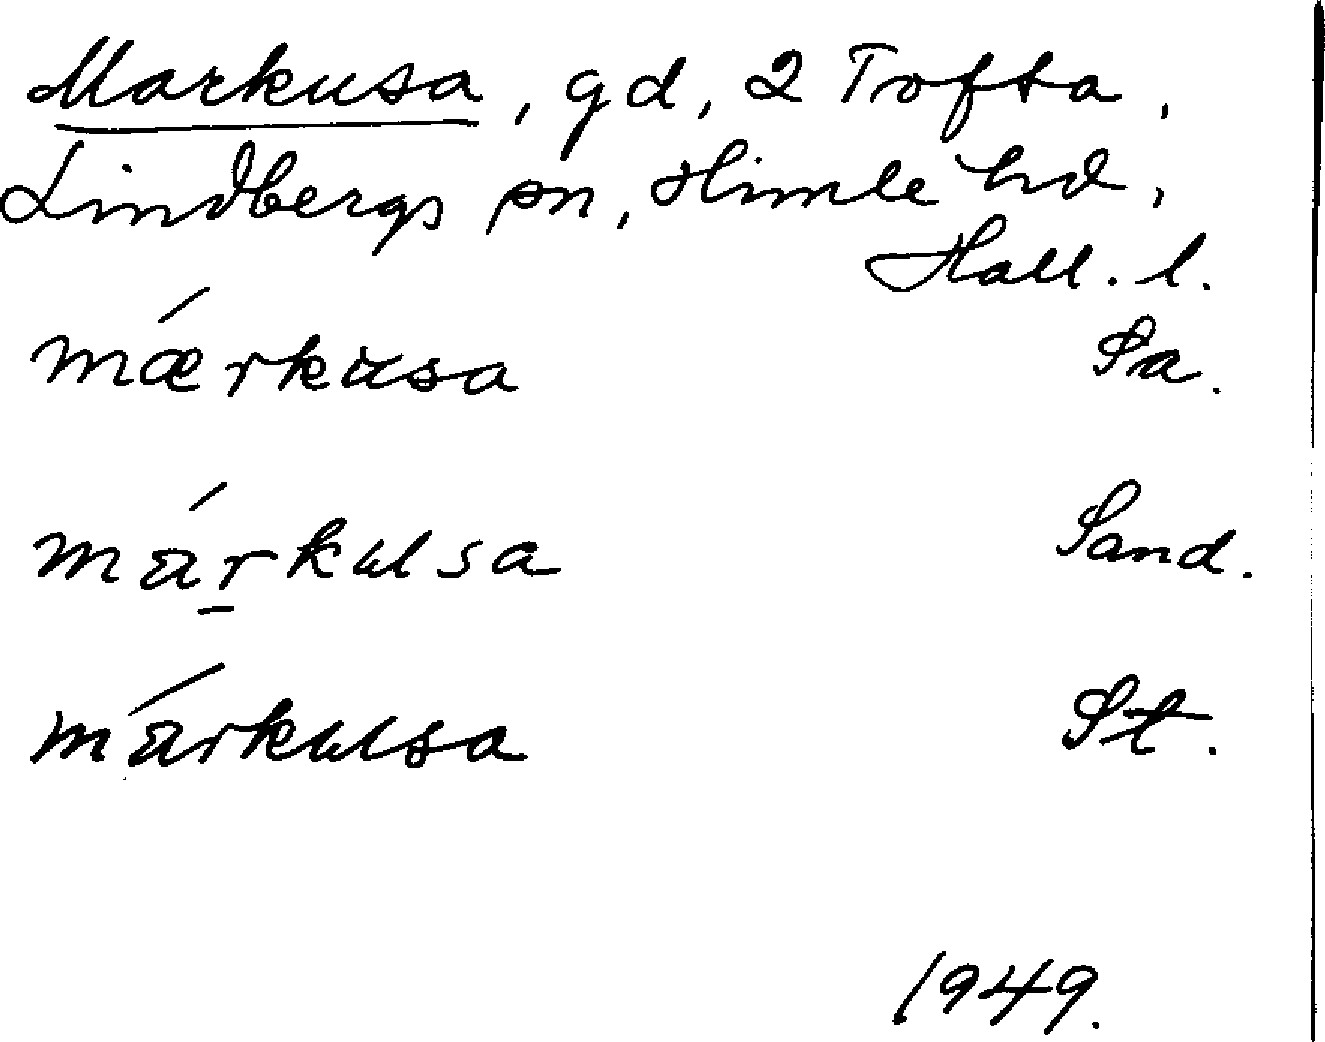 Markusa, gd, 2 Tofta,
Lindbergs sn, Himle hd,
Hall. l.
mǽrkusa Sa.
márkusa Sand.
márkusa St.
1949.